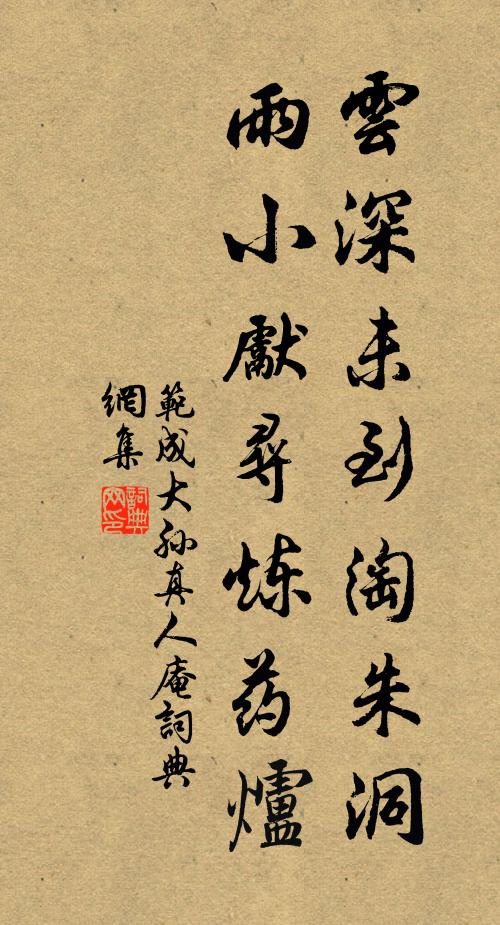 雲深未到淘朱洞
雨小獻尋炼药爐
範成大孫真人庵詞典
網集
詞典
网印